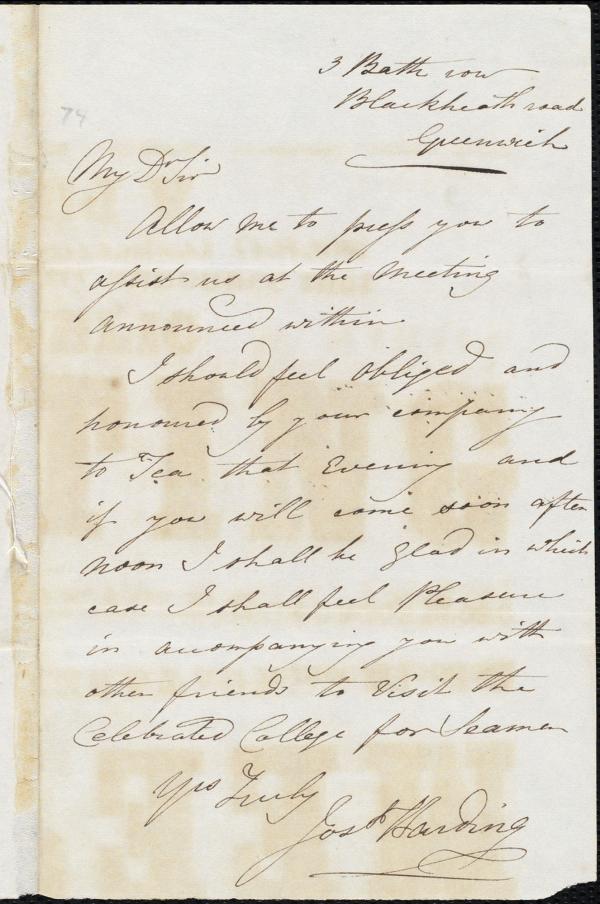 3 Bath row
Blackheath road
Greenwich
74
My Dr Sir
Allow me to press you to
assist us at the Meeting
announced within
I should feel obliged and
honoured by your company
to Tea that Evening and
if you will come soon after
noon I shall be glad in which
case I shall feel Pleasure
in accompanying you with
other friends to Visit the
Celebrated College for Seamen
Yrs Truly
Josh Harding